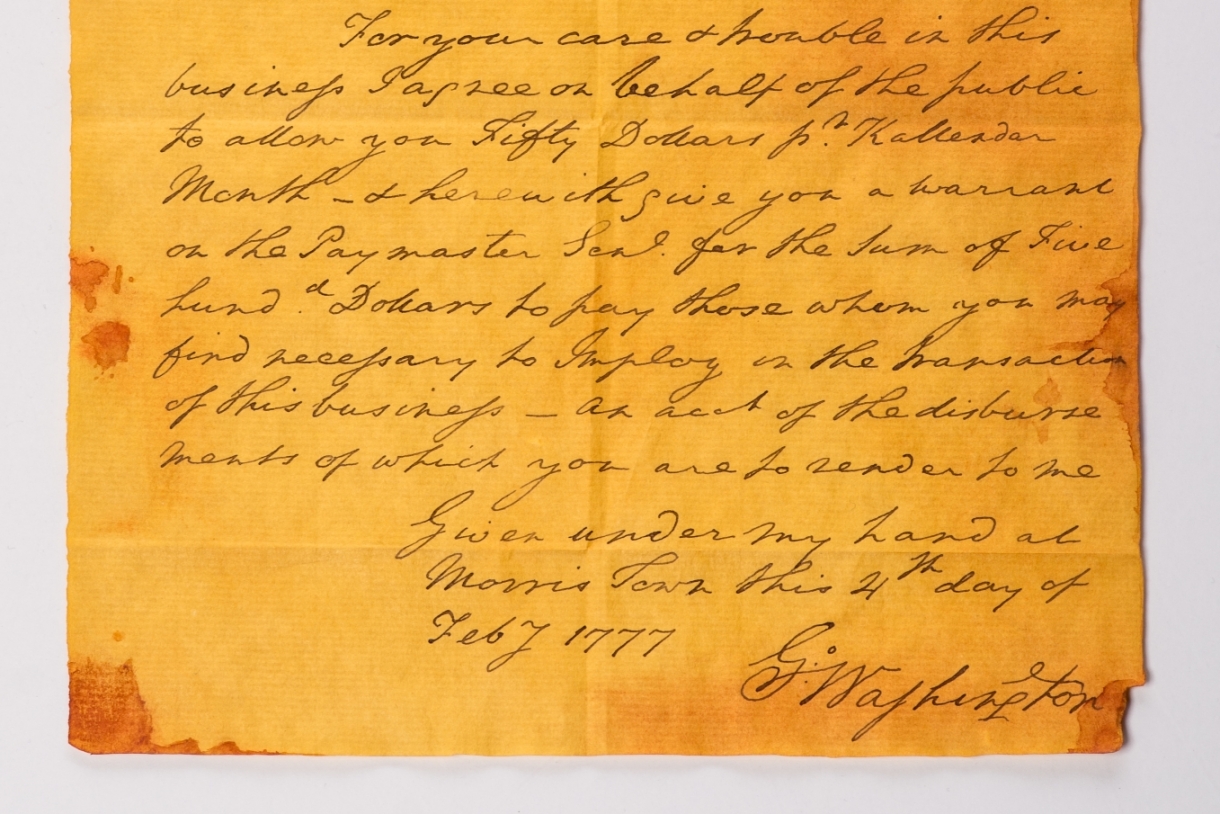 For your care & trouble in this
business I agree on behalf of the public
to allow you Fifty Dollars pr. Kallendar
Month – & herewith give you a warrant
on the Paymaster Genl. for the Sum of Five
hundd. Dollars to pay those whom you may
find necessary to Imploy in the transaction
of this business – an acct of the disburse
ments of which you are to render to me
Given under my hand at
Morris Town this 4th day of
Feby 1777
Go: Washington